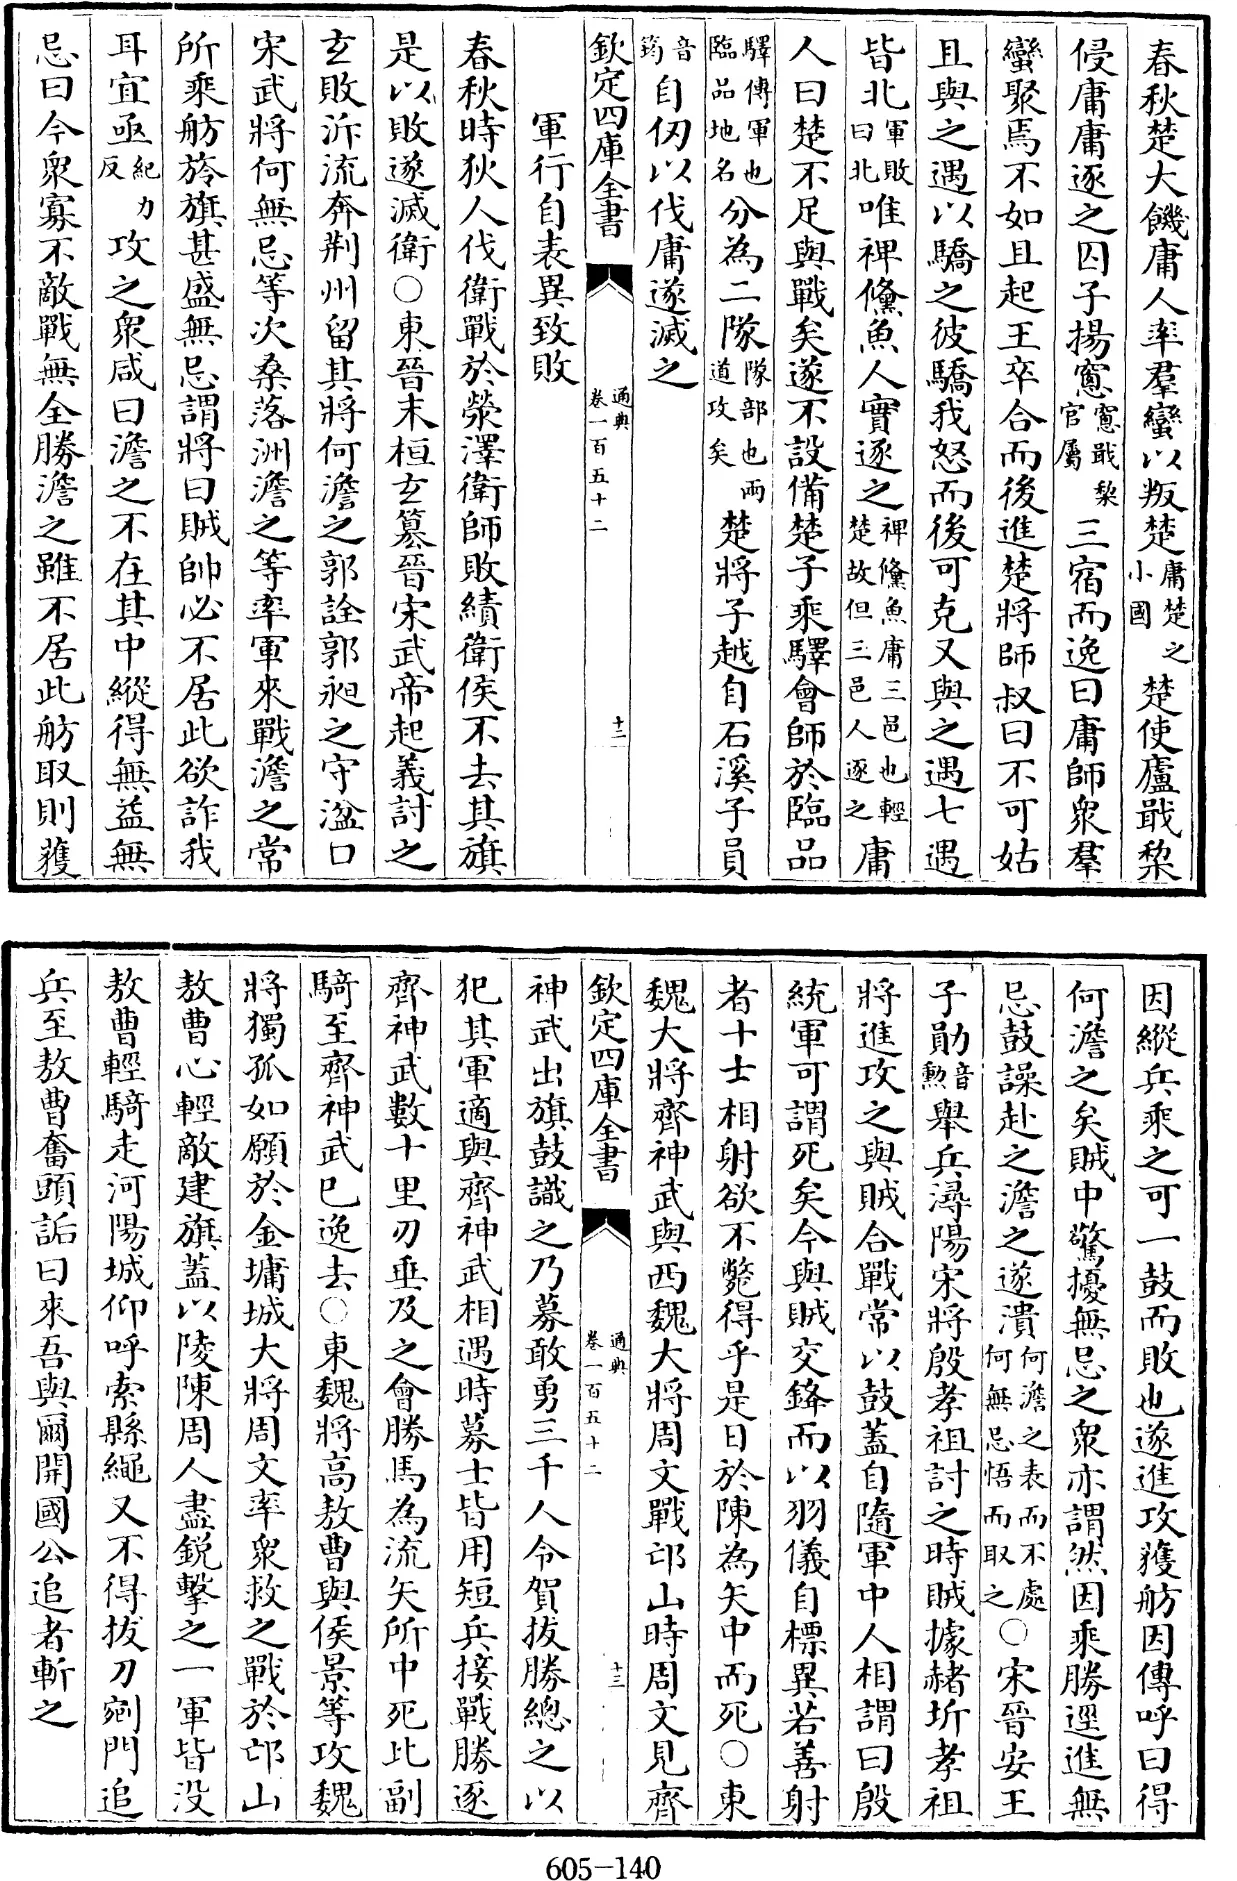 春秋楚大饑庸人率羣蠻以叛楚庸楚之小國楚使廬戢黎
侵庸庸逐之囚子揚窻窻戢黎官屬三宿而逸曰庸師衆羣
蠻聚焉不如且起王卒合而後進楚將師叔曰不可姑
且與之遇以驕之彼驕我怒而後可克又與之遇七遇
皆北軍敗曰北唯裨儵魚人實逐之裨儵魚庸三邑也輕楚故但三邑人逐之庸
人曰楚不足與戰矣遂不設備楚子乘驛會師於臨品
驛傳軍也臨品地名分為二隊隊部也兩道攻矣楚將子越自石溪子員
音筠自仞以伐庸遂滅之
欽定四庫全書
通典
卷一百五十二
十二
軍行自表異致敗
春秋時狄人伐衛戰於滎澤衛師敗績衛侯不去其旗
是以敗遂滅衛○東晉末桓玄簒晉宋武帝起義討之
玄敗泝流奔荆州留其將何澹之郭詮郭昶之守湓口
宋武將何無忌等次桑落洲澹之等率軍來戰澹之常
所乘舫旍旗甚盛無忌謂將曰賊帥必不居此欲詐我
耳宜亟紀力反攻之衆咸曰澹之不在其中縱得無益無
忌曰今衆寡不敵戰無全勝澹之雖不居此舫取則獲
因縱兵乘之可一鼓而敗也遂進攻獲舫因傳呼曰得
何澹之矣賊中驚擾無忌之衆亦謂然因乘勝逕進無
忌鼓譟赴之澹之遂潰何澹之表而不處何無忌悟而取之○宋晉安王
子勛音勲舉兵潯陽宋將殷孝祖討之時賊據赭圻孝祖
將進攻之與賊合戰常以鼓蓋自隨軍中人相謂曰殷
統軍可謂死矣今與賊交鋒而以羽儀自標異若善射
者十士相射欲不斃得乎是日於陳為矢中而死○東
魏大將齊神武與西魏大將周文戰邙山時周文見齊
欽定四庫全書
通典
卷一百五十二
十三
神武出旗鼓識之乃募敢勇三千人令賀拔勝總之以
犯其軍適與齊神武相遇時募士皆用短兵接戰勝逐
齊神武數十里刃垂及之會勝馬為流矢所中死比副
騎至齊神武已逸去○東魏將高敖曹與侯景等攻魏
將獨孤如願於金墉城大將周文率衆救之戰於邙山
敖曹心輕敵建旗蓋以陵陳周人盡鋭擊之一軍皆没
敖曹輕騎走河陽城仰呼索縣繩又不得拔刀剜門追
兵至敖曹奮頭詬曰來吾與爾開國公追者斬之
605-140